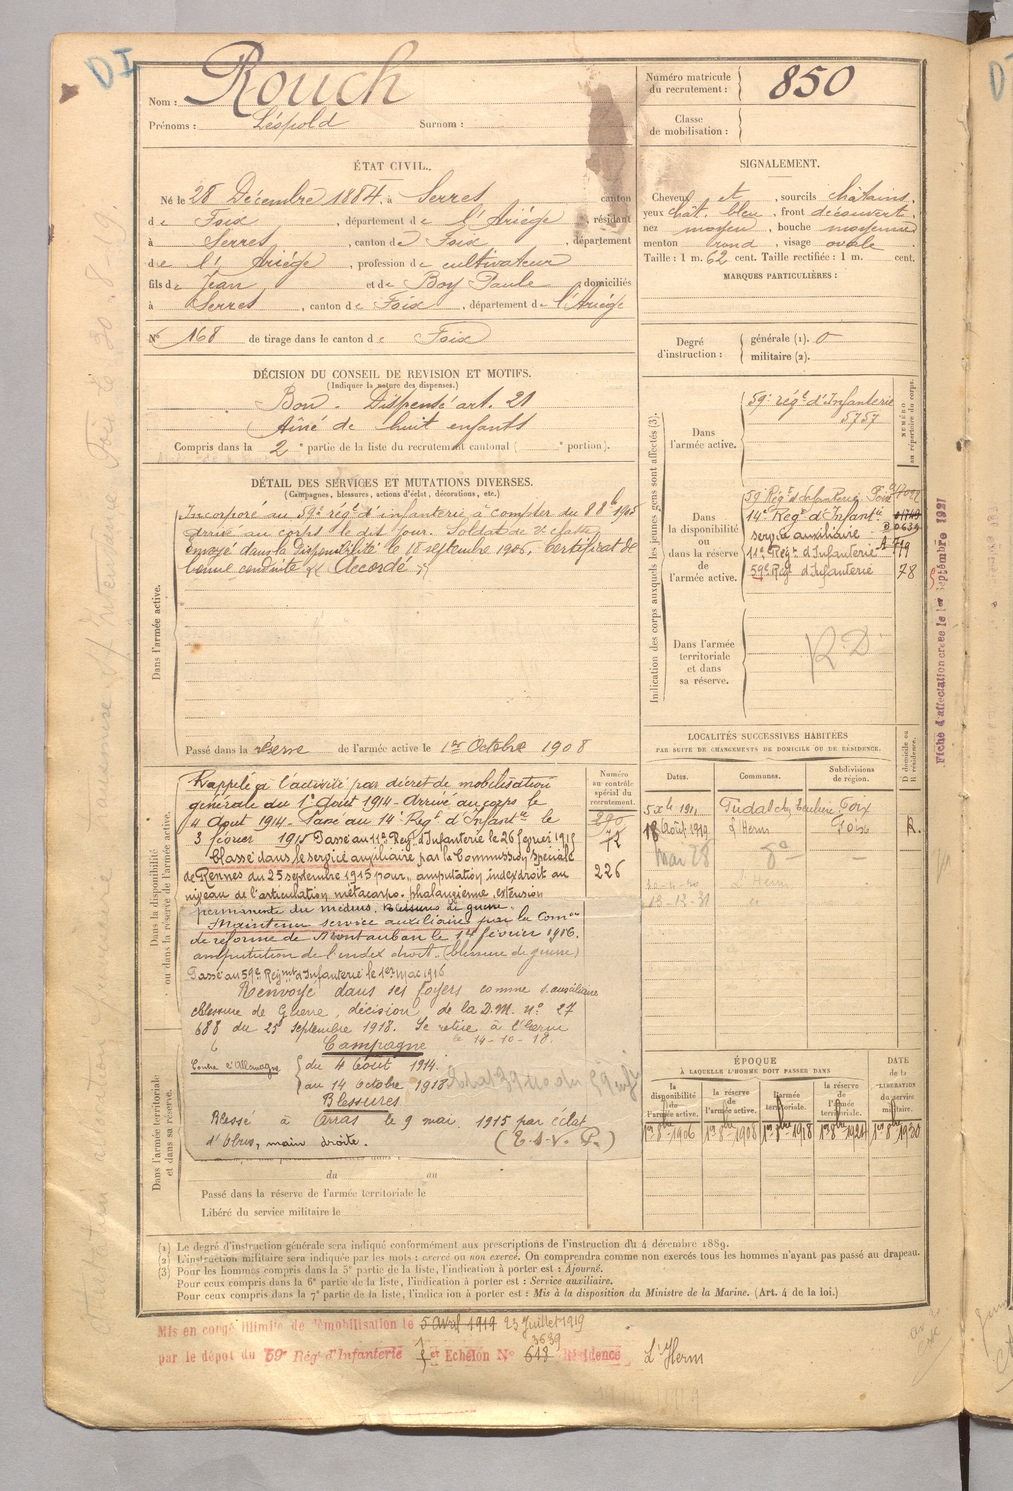 DI
Nom : Rouch
Prénoms : Léopold Surnom :
Numéro matricule du recrutement : 850
Classe de mobilisation :
ÉTAT CIVIL.
Né le 28 Décembre 1884, à Serres canton
de Foix, département de l'Ariège, résidant
à Serres, canton de Foix, département
de l'Ariège, profession de cultivateur
fils de Jean et de Boy Paule, domiciliés
à Serres, canton de Foix, département de l'Ariège
N° 168 de tirage dans le canton de Foix
SIGNALEMENT.
Cheveux et, sourcils châtains,
yeux chât. bleu, front découvert,
nez moyen, bouche moyenne
menton rond, visage ovale
Taille : 1 m. 62 cent. Taille rectifiée : 1 m. cent.
MARQUES PARTICULIÈRES :
Degré d'instruction :
générale (1). 0
militaire (2).
DÉCISION DU CONSEIL DE REVISION ET MOTIFS.
(Indiquer la nature des dispenses.)
Bon - Dispensé art. 21
Aîné de huit enfants
Compris dans la 2e partie de la liste du recrutement cantonal ( e portion).
DÉTAIL DES SERVICES ET MUTATIONS DIVERSES.
(Campagnes, blessures, actions d'éclat, décorations, etc.)
Incorporé au 59e régt d'infanterie à compter du 8 8bre 1905
arrivé au corps le dit jour. Soldat de 2e classe
envoyé dans la disponibilité le 18 septembre 1906, Certificat de
bonne conduite "Accordé"
Dans l'armée active.
Passé dans la réserve de l'armée active le 1er Octobre 1908
Indication des corps auxquels les jeunes gens sont affectés (3).
NUMÉRO au répertoire du corps.
Dans l'armée active.
59e régt d'Infanterie
5757
Dans la disponibilité ou dans la réserve de l'armée active.
59e Régt d'Infanterie Foix
14e Regt d'Infantie
serve auxiliaire
11e Régt d'Infanterie 719
59e Rég d'Infanterie 78
Dans l'armée territoriale et dans sa réserve.
R D
Fiche d'affectation créée le 1er Septembre 1921
Dans la disponibilité ou dans la réserve de l'armée active.
Numéro au contrôle spécial du recrutement.
290
72
226
Rappelé à l'activité par décret de mobilisation
générale du 1er Août 1914 - Arrivé au corps le
4 Aout 1914 - Passé au 14e Régt d'Infantie le
3 février 1915 Passé au 11e Rég. d'Infanterie le 26 février 1915
Classé dans le service auxiliaire par la Commission Spéciale
de Rennes du 25 septembre 1915 pour, amputation index droit au
niveau de l'articulation métacarpo-phalangienne, extension
permanente du médius. Blessures de guerre.
Maintenu service auxiliaire par la Comon
de réforme de Montauban le 1er février 1916.
amputation de l'index droit. (blessure de guerre)
Passé au 59e Régmt d'Infanterie le 1er mai 1916
Renvoyé dans ses foyers comme s. auxiliaire
blessure de Guerre, décision de la D.M. n° 27
688 du 25 septembre 1918. Se retire à l'Herm
le 14-10-18.
Campagne
Contre l'Allemagne { du 4 Août 1914.
au 14 Octobre 1918
Blessures
Blessé à Arras le 9 mai 1915 par éclat
d'obus, main droite. (E.S.V.P.)
Dans l'armée territoriale et dans sa réserve.
du au
Passé dans la réserve de l'armée territoriale le
Libéré du service militaire le
LOCALITÉS SUCCESSIVES HABITÉES
PAR SUITE DE CHANGEMENTS DE DOMICILE OU DE RÉSIDENCE.
Dates. Communes. Subdivisions de région. D domicile ou R résidence.
5 Xbre 1911 Foix
18 Août 1919 L'Herm Foix R.
Mai 28 do —
L'Herm
13-12-31 "
ÉPOQUE
À LAQUELLE L'HOMME DOIT PASSER DANS
DATE de la LIBÉRATION du service militaire.
la disponibilité de l'armée active. la réserve de l'armée active. l'armée territoriale. la réserve de l'armée territoriale.
1er 8bre 1906 1er 8bre 1908 1er 8bre 1918 1er 8bre 1924 1er 8bre 1930
(1) Le degré d'instruction générale sera indiqué conformément aux prescriptions de l'instruction du 4 décembre 1889.
(2) L'instruction militaire sera indiquée par les mots : exercé ou non exercé. On comprendra comme non exercés tous les hommes n'ayant pas passé au drapeau.
(3) Pour les hommes compris dans la 5e partie de la liste, l'indication à porter est : Ajourné.
Pour ceux compris dans la 6e partie de la liste, l'indication à porter est : Service auxiliaire.
Pour ceux compris dans la 7e partie de la liste, l'indication à porter est : Mis à la disposition du Ministre de la Marine. (Art. 4 de la loi.)
Mis en congé illimité de démobilisation le 5 Avril 1919 23 Juillet 1919
3639
par le dépôt du 59e Régt d'Infanterie 1er Echelon N° 648 Résidence L'Herm